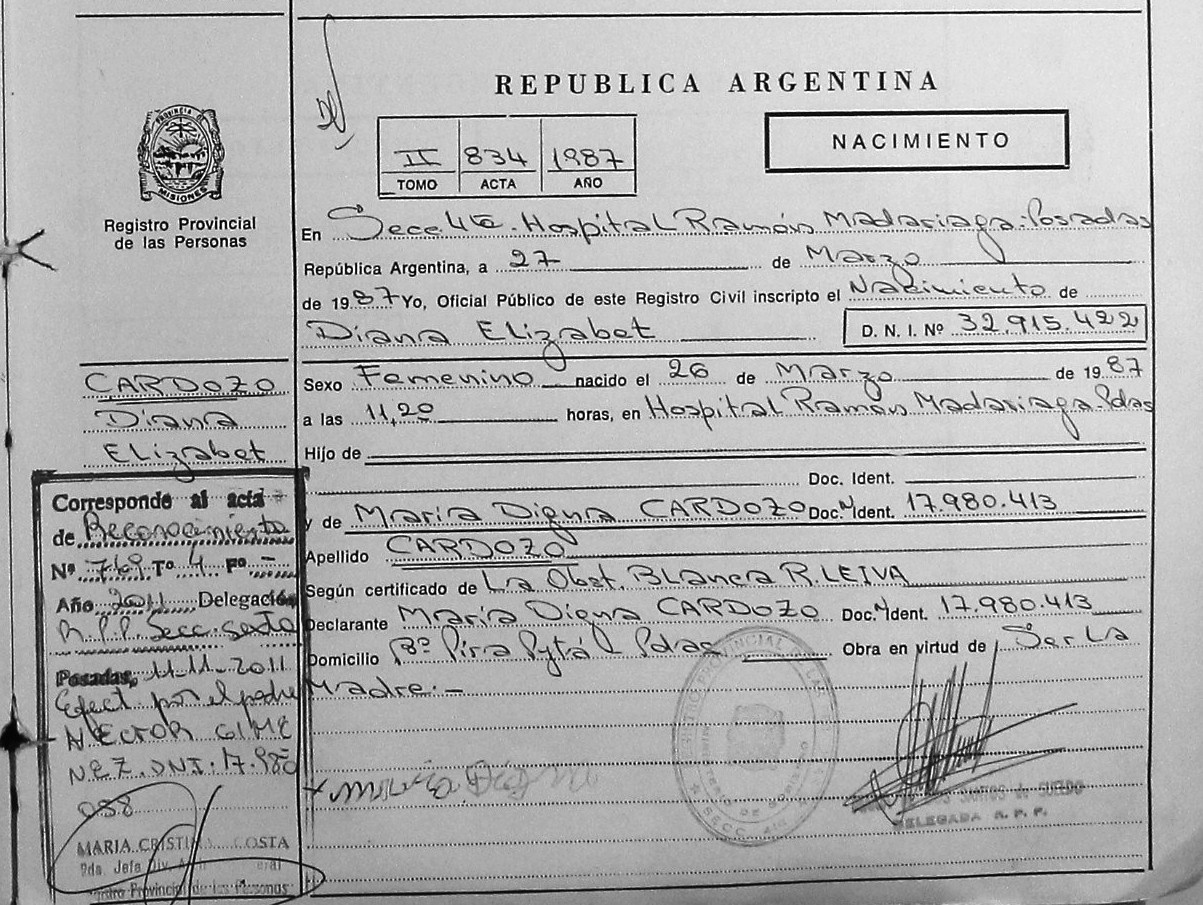 REPUBLICA ARGENTINA
PROVINCIA DE MISIONES
Registro Provincial
de las Personas
II 834 1987
TOMO ACTA AÑO
NACIMIENTO
En Secc 4ta. Hospital Ramón Madariaga-Posadas
República Argentina, a 27 de Marzo
de 1987 Yo, Oficial Público de este Registro Civil inscripto el Nacimiento de
Diana Elizabet D. N. I. Nº 32.915.422
Sexo Femenino nacido el 26 de Marzo de 1987
a las 11,20 horas, en Hospital Ramón Madariaga-Pdas
Hijo de
Doc. Ident.
y de María Digna CARDOZO Doc. Ident. 17.980.413
Apellido CARDOZO
Según certificado de La Obst. Blanca R. LEIVA
Declarante María Digna CARDOZO Doc. Ident. 17.980.413
Domicilio Bº Pira Pytá Pdas Obra en virtud de Ser La
Madre:-
María Digna
SANTOS de SUELDO
DELEGADA R. P. P.
CARDOZO
Diana
Elizabet
Corresponde al acta
de Reconocimiento
Nº 769 Tº 4 Fº -
Año 2011 Delegación
R.P.P. Secc. sexta
Posadas, 11-11-2011
Efect por el padre
HECTOR GIME
NEZ. DNI: 17.980
058
MARIA CRISTINA COSTA
Registro Provincial de las Personas